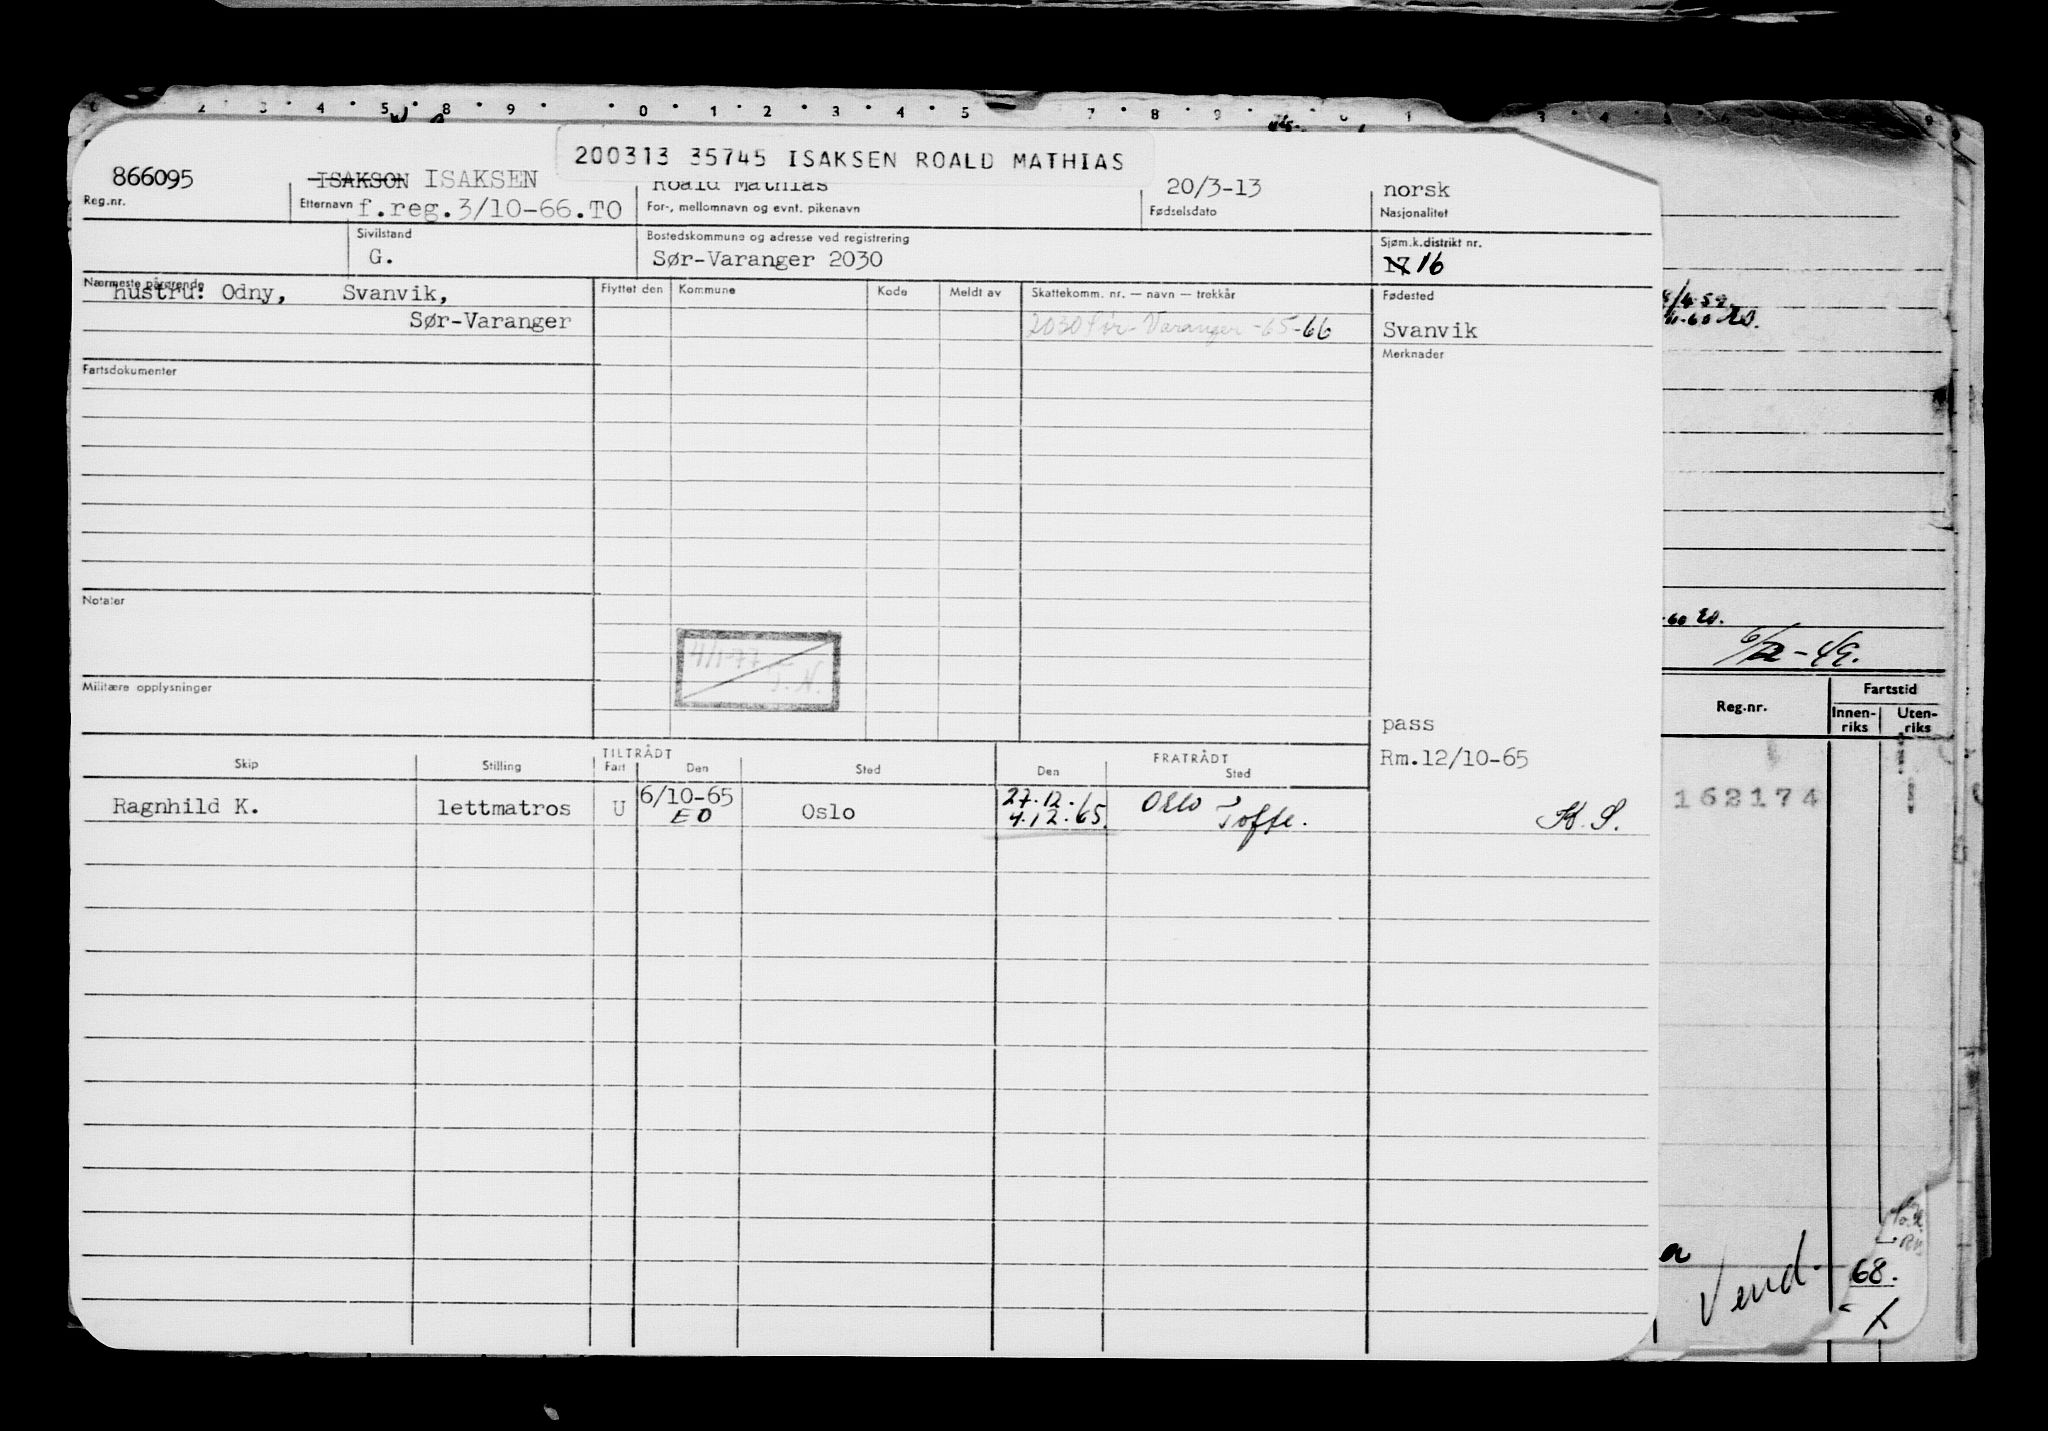 2 3 4 5 8 9 0 1 2 3 4 5 7 8 9 0 1 3 4
200313 35745 ISAKSEN ROALD MATHIAS
866095 ISAKSON ISAKSEN Roald Mathias 20/3-13 norsk
Reg.nr. Etternavn f.reg.3/10-66.TO For-, mellomnavn og evnt. pikenavn Fødselsdato Nasjonalitet
Sivilstand Bostedskommune og adresse ved registrering Sjøm.k.distrikt nr.
G. Sør-Varanger 2030 17 16
Nærmeste pårørende Flyttet den Kommune Kode Meldt av Skattekomm. nr. — navn — trekkår Fødested
hustru: Odny, Svanvik,
Sør-Varanger 2030 Sør-Varanger -65-66 Svanvik
Merknader
Fartsdokumenter
Notater
4/1-77 T.N.
Militære opplysninger
pass
TILTRÅDT FRATRÅDT Rm.12/10-65
Skip Stilling Fart Den Sted Den Sted
Ragnhild K. lettmatros U 6/10-65 Oslo 27.12. Oslo
EO 4.12.65. Tofte. K.S.
-60
6/2-49.
Reg.nr. Fartstid
Innen-riks Uten-riks
162174
a
Vend.
68.